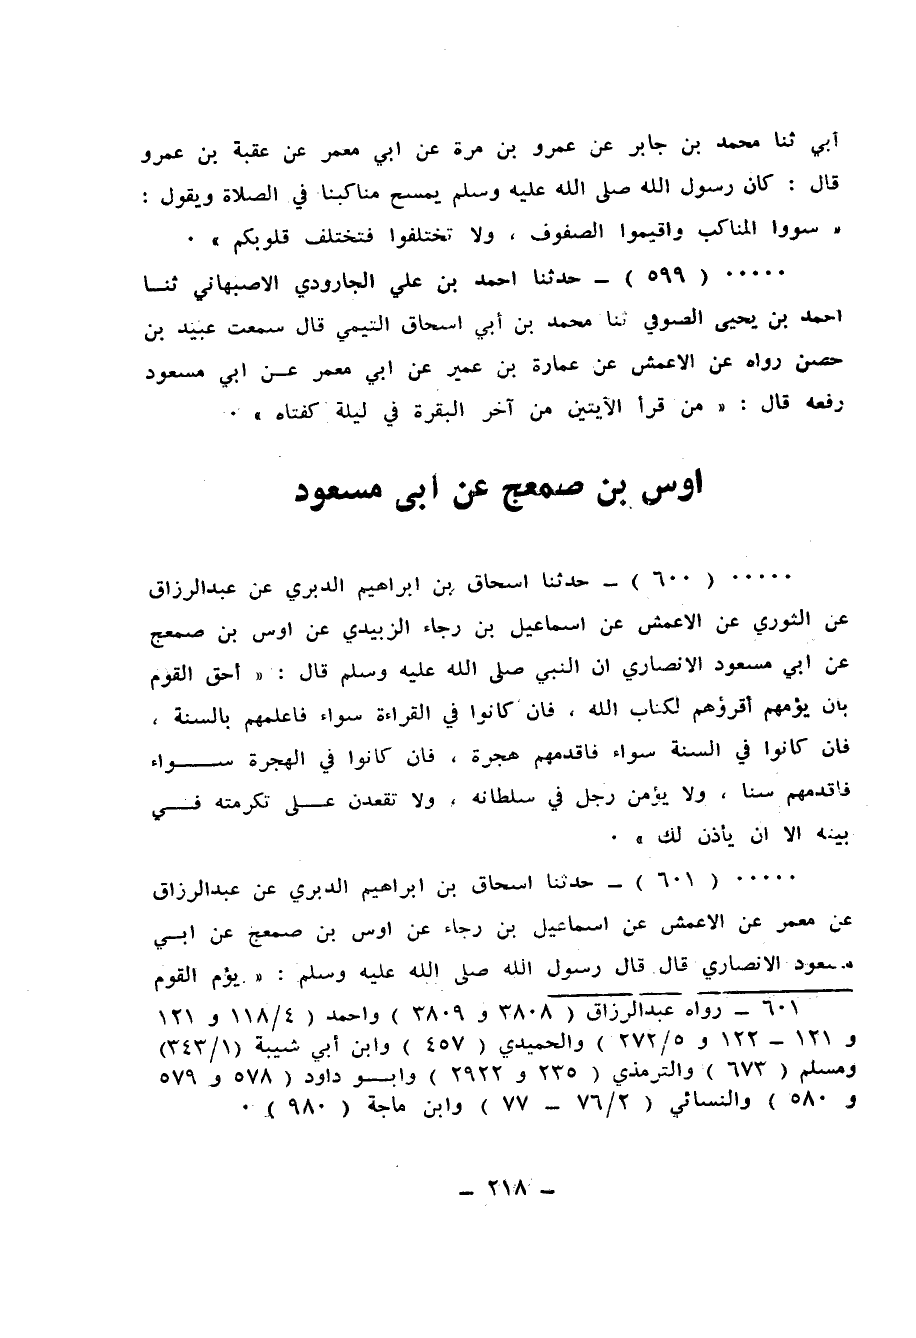 أبي ثنا محمد بن جابر عن عمرو بن مرة عن ابي معمر عن عقبة بن عمرو
قال : كان رسول الله صلى الله عليه وسلم يمسح مناكبنا في الصلاة ويقول :
« سووا المناكب واقيموا الصفوف ، ولا تختلفوا فتختلف قلوبكم » ٠
٠٠٠٠٠ ( ٥٩٩ ) ــ حدثنا احمد بن علي الجارودي الاصبهاني ثنــا
احمد بن يحيى الصوفي ثنا محمد بن أبي اسحاق التيمي قال سمعت عبيد بن
حصن رواه عن الاعمش عن عمارة بن عمير عن ابي معمر عــن ابي مسعود
رفعه قال : « من قرأ الآيتين من آخر البقرة في ليلة كفتاه » ٠
اوس بن صمعج عن أبى مسعود
٠٠٠٠٠ ( ٦٠٠ ) ــ حدثنا اسحاق بن ابراهيم الدبري عن عبدالرزاق
عن الثوري عن الاعمش عن اسماعيل بن رجاء الزبيدي عن اوس بن صمعج
عن ابي مسعود الانصاري ان النبي صلى الله عليه وسلم قال : « أحق القوم
بان يؤمهم أقرؤهم لكتاب الله ، فان كانوا في القراءة سواء فاعلمهم بالسنة ،
فان كانوا في السنة سواء فاقدمهم هجرة ، فان كانوا في الهجرة ســــواء
فاقدمهم سنا ، ولا يؤمن رجل في سلطانه ، ولا تقعدن عــلى تكرمته فــي
بيته الا ان يأذن لك » ٠
٠٠٠٠٠ ( ٦٠١ ) ــ حدثنا اسحاق بن ابراهيم الدبري عن عبدالرزاق
عن معمر عن الاعمش عن اسماعيل بن رجاء عن اوس بن صمعج عن ابــي
مسعود الانصاري قال قال رسول الله صلى الله عليه وسلم : « يؤم القوم
٦٠١ ــ رواه عبدالرزاق ( ٣٨٠٨ و ٣٨٠٩ ) واحمد ( ١١٨/٤ و ١٢١
و ١٢١ ــ ١٢٢ و ٢٧٢/٥ ) والحميدي ( ٤٥٧ ) وابن أبي شيبة (٣٤٣/١)
ومسلم ( ٦٧٣ ) والترمذي ( ٢٣٥ و ٢٩٢٢ ) وابــو داود ( ٥٧٨ و ٥٧٩
و ٥٨٠ ) والنسائي ( ٧٦/٢ ــ ٧٧ ) وابن ماجة ( ٩٨٠ ) ٠
ــ ٢١٨ ــ